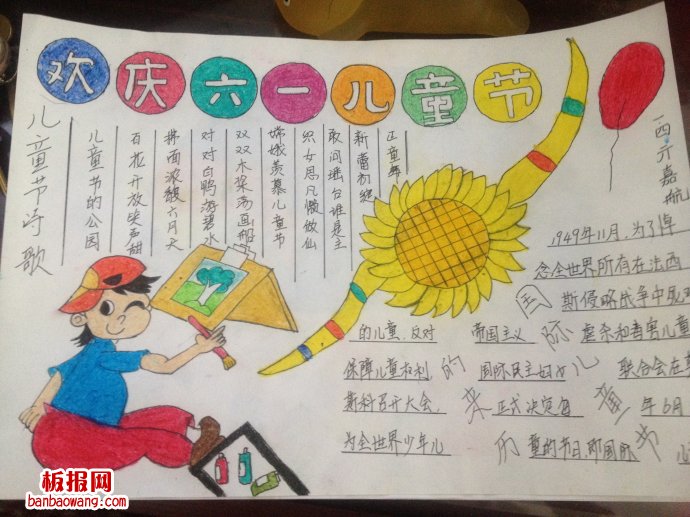 欢庆六一儿童节
儿童节诗歌
儿童节的公园
百花开放笑声甜
拂面浓馥六月天
对对白鸭游碧水
双双木桨荡画船
嫦娥羡慕儿童节
织女思凡懒做仙
敢问瑶台谁是主
新蕾初绽
正童舞
一四 亓嘉航
国际儿童节的来历
1949年11月,为了悼
念全世界所有在法西
斯侵略战争中死
的儿童,反对 帝国主义 虐杀和毒害儿童
保障儿童权利, 国际民主妇 联合会在
斯科召开大会, 正式决定每 年6月
为全世界少年儿 童的节日,即国际
板报网
banbaowang.com